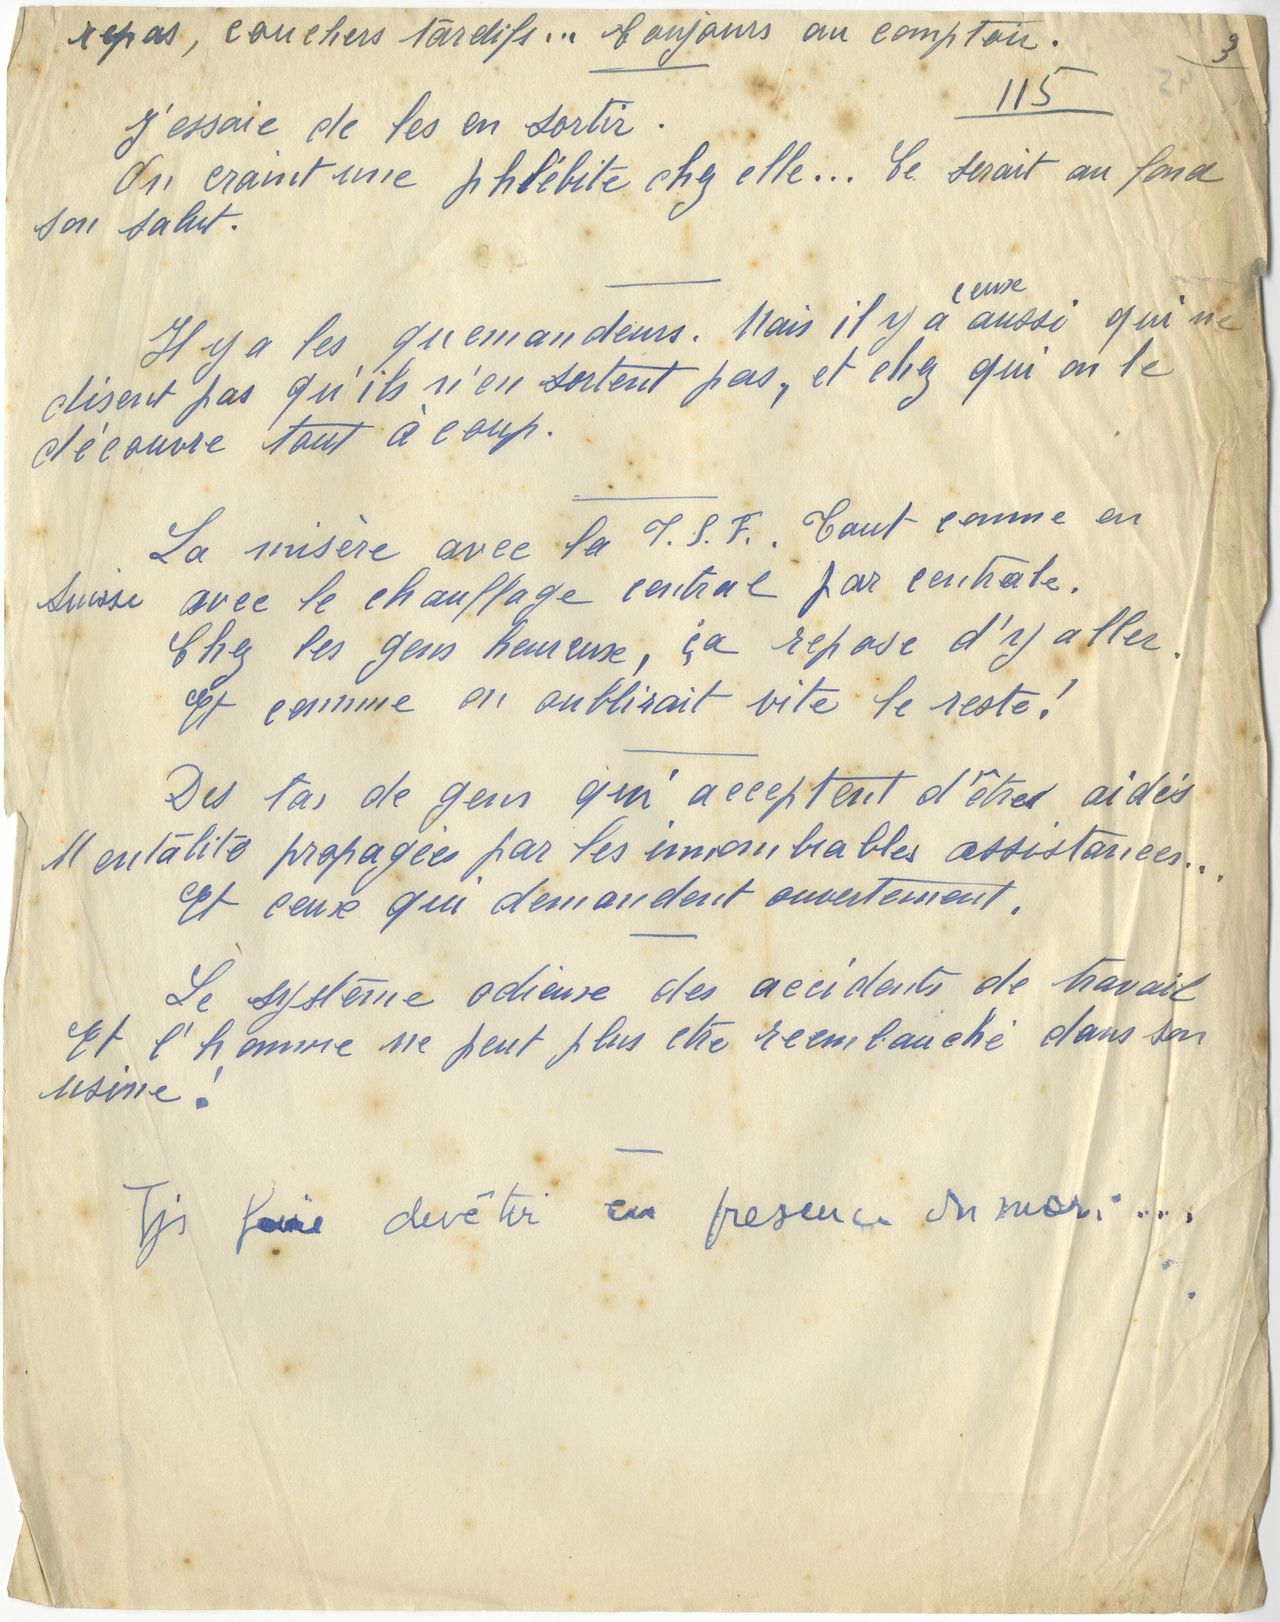 repas, couchers tardifs... Toujours au comptoir.
3
115
J'essaie de les en sortir.
On craint une phlébite chez elle... Ce serait au fond
son salut.
Il y a les quemandeurs. Mais il y a ceux aussi qui ne
disent pas qu'ils n'en sortent pas, et chez qui on le
découvre tout à coup.
La misère avec la T.S.F.. Tout comme en
Suisse avec le chauffage central par centrale.
Chez les gens heureux, ça repose d'y aller.
Et comme on oublirait vite le reste!
Des tas de gens qui acceptent d'être aidés
Mentalité propagée par les innombrables assistances...
Et ceux qui demandent ouvertement.
Le système odieux des accidents de travail
Et l'homme ne peut plus etre reembauché dans son
usine!
Tjs faire devêtir en presence du mari...